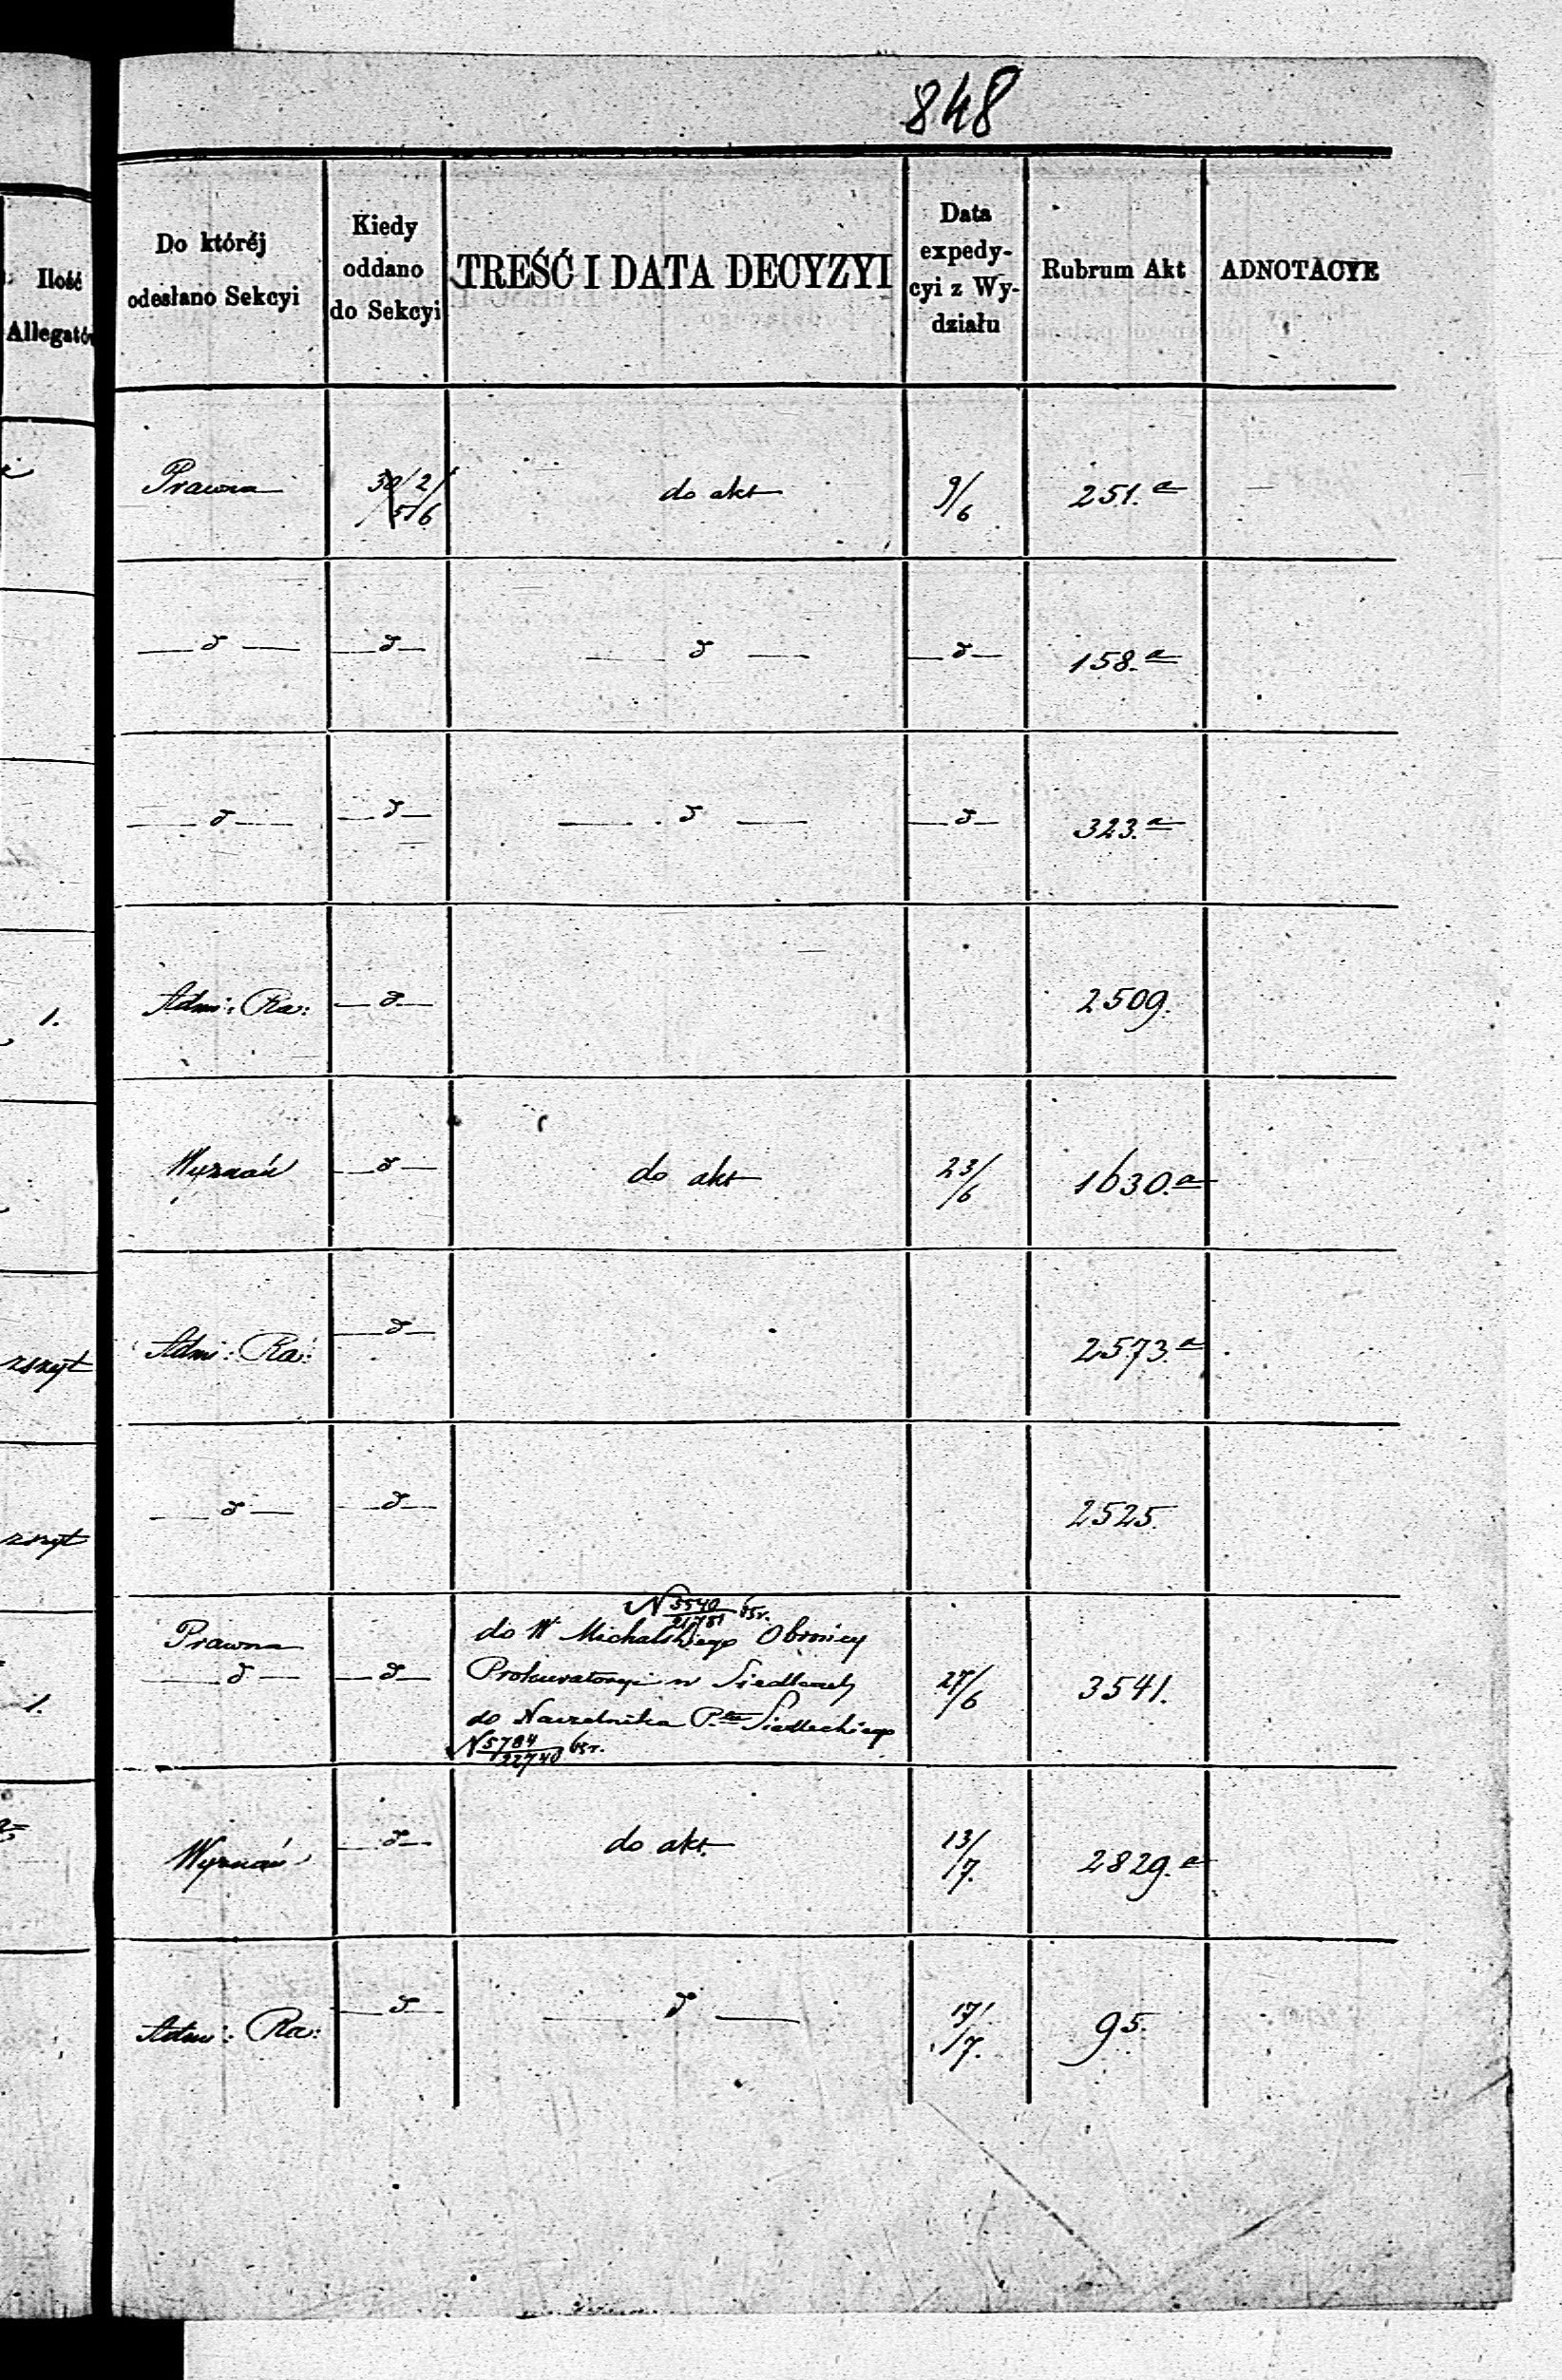 848
Ilość
Allegatów
Do któréj
odesłano Sekcyi
Kiedy
oddano
do Sekcyi
TREŚĆ I DATA DECYZYI
Data
expedy-
cyi z Wy-
działu
Rubrum Akt
ADNOTACYE
Prawna 30/5 2/6 do akt 9/6 251.a
— d — — d — — d — — d — 158.a
— d — — d — — d — — d — 323.a
1. Adm: Ra: — d — 2509.
Wyznań — d — do akt 23/6 1630.a
zszyt Adm: Ra: — d — 2573.a
zszyt — d — — d — 2525.
N 5540/21781 65r.
Prawna do W Michalskiego Obrońcy
1. — d — — d — Prokuratoryi w Siedlcach 27/6 3541.
do Naczelnika P.tu Siedleckiego
N 5784/22740 65r.
Wyznań — d — do akt. 13/7. 2829.a
Adm: Ra: — d — — d — 17/7. 95.